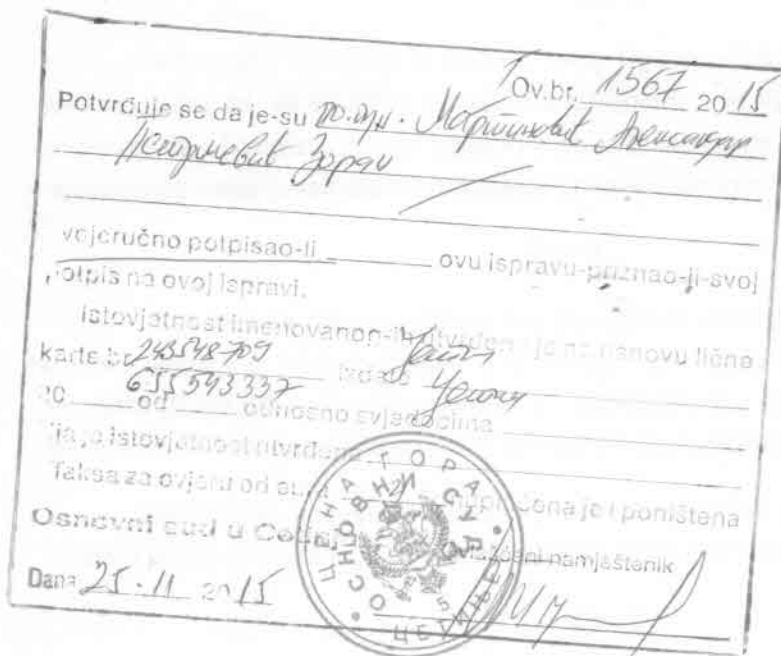 Ov.br. 1567 20 15
Potvrđuje se da je-su Мартиновић Александар
Зоран
vojeručno potpisao-li ovu ispravu-priznao-li-svoj
potpis na ovoj ispravi.
Istovjetnost imenovanog-ih utvrđena je na osnovu lične
karte br. 243548709 izdate
655543337
20 od odnosno svjedocima
čija je istovjetnost utvrđena
Taksa za ovjeru od eura plaćena je i poništena
Osnovni sud u
namještenik
Dana 25.11 2015
ЦРНА ГОРА
ОСНОВНИ СУД
ЦЕТИЊЕ